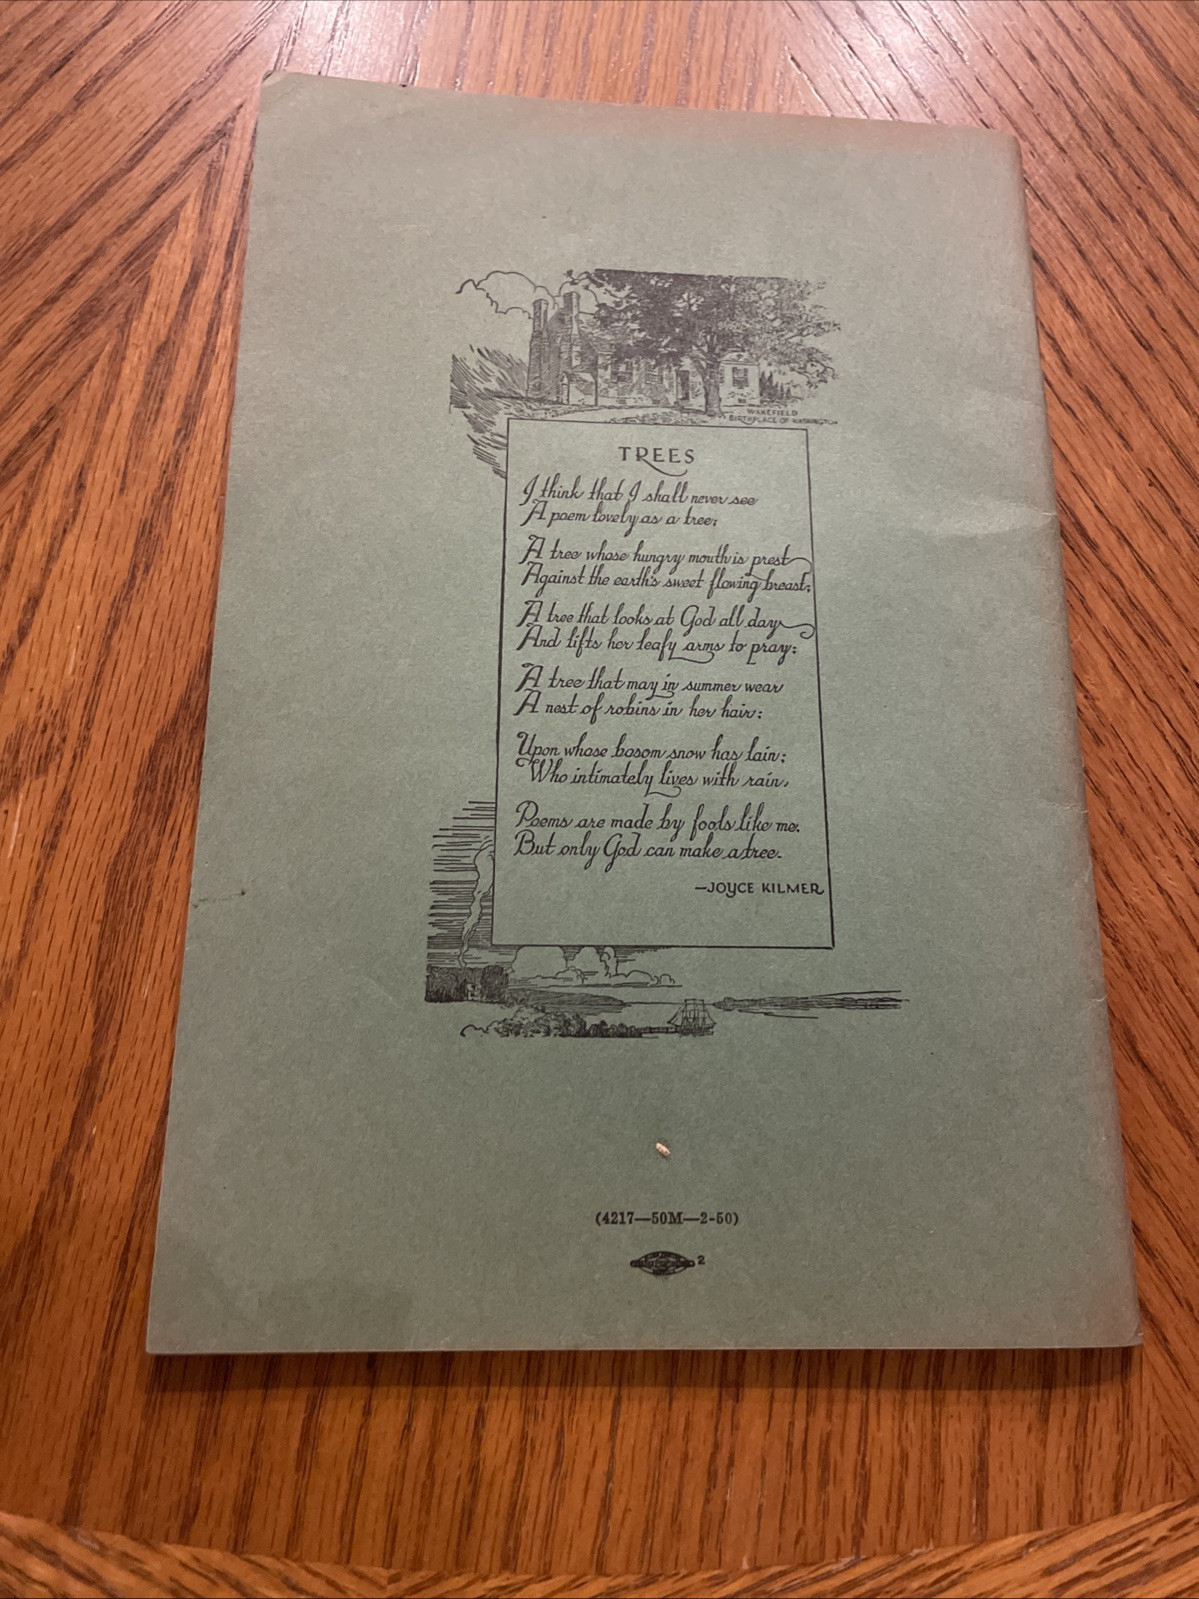 WAKEFIELD
BIRTHPLACE OF WASHINGTON
TREES
I think that I shall never see
A poem lovely as a tree;
A tree whose hungry mouth is prest
Against the earth's sweet flowing breast;
A tree that looks at God all day
And lifts her leafy arms to pray;
A tree that may in summer wear
A nest of robins in her hair;
Upon whose bosom snow has lain;
Who intimately lives with rain.
Poems are made by fools like me.
But only God can make a tree.
—JOYCE KILMER
(4217—50M—2-50)
2